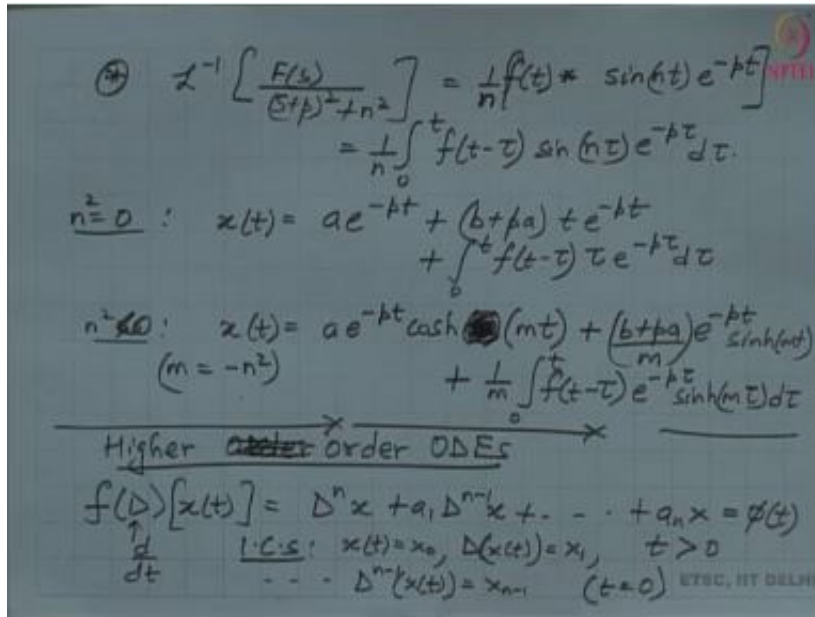 ⊛ L⁻¹ [ F(s) / ((s+p)² + n²) ] = 1/n [f(t) * sin(nt) e^{-pt}]
NPTEL
= 1/n ∫₀ᵗ f(t-τ) sin(nτ) e^{-pτ} dτ.
n² = 0 : x(t) = ae^{-pt} + (b+pa) t e^{-pt}
+ ∫₀ᵗ f(t-τ) τ e^{-pτ} dτ
n² < 0 : x(t) = ae^{-pt} cosh (mt) + ((b+pa)/m) e^{-pt} sinh(mt)
(m = -n²) + 1/m ∫₀ᵗ f(t-τ) e^{-pτ} sinh(mτ) dτ
Higher order ODEs
f(D)[x(t)] = Dⁿx + a₁Dⁿ⁻¹x + - - - + aₙx = φ(t)
↑ d/dt I.C.s : x(t) = x₀, D(x(t)) = x₁, t > 0
- - - Dⁿ⁻¹(x(t)) = xₙ₋₁ (t=0)
ETSC, IIT DELHI